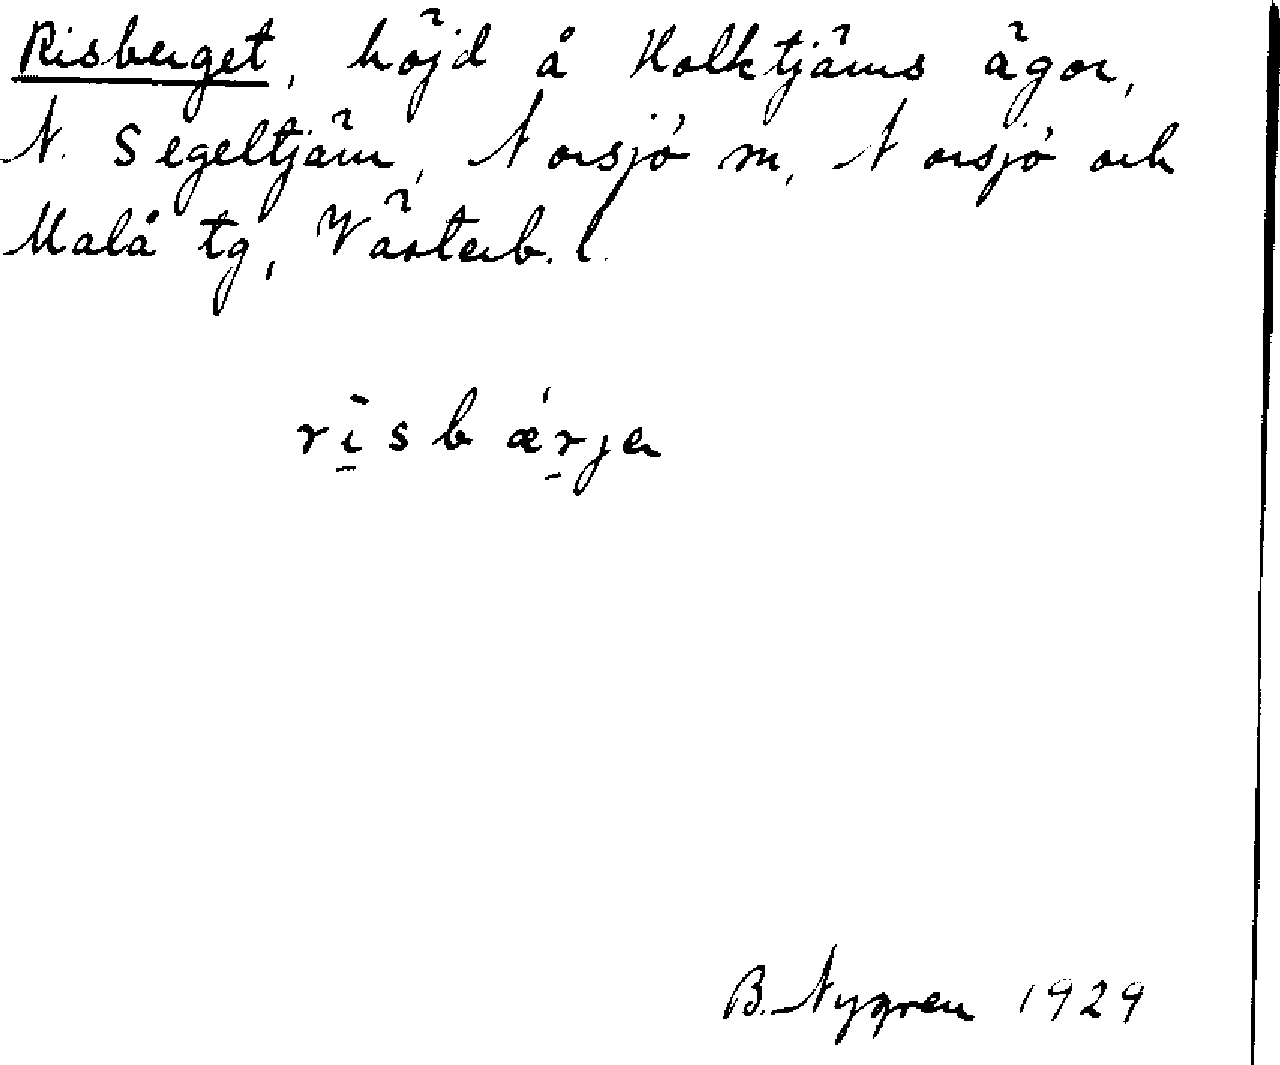 Risberget, höjd å Holktjärns ägor,
N. Segeltjärn, Norsjö sn, Norsjö och
Malå tg, Västerb. l.
rı̱̄sbǽr̠je
B. Nygren 1929